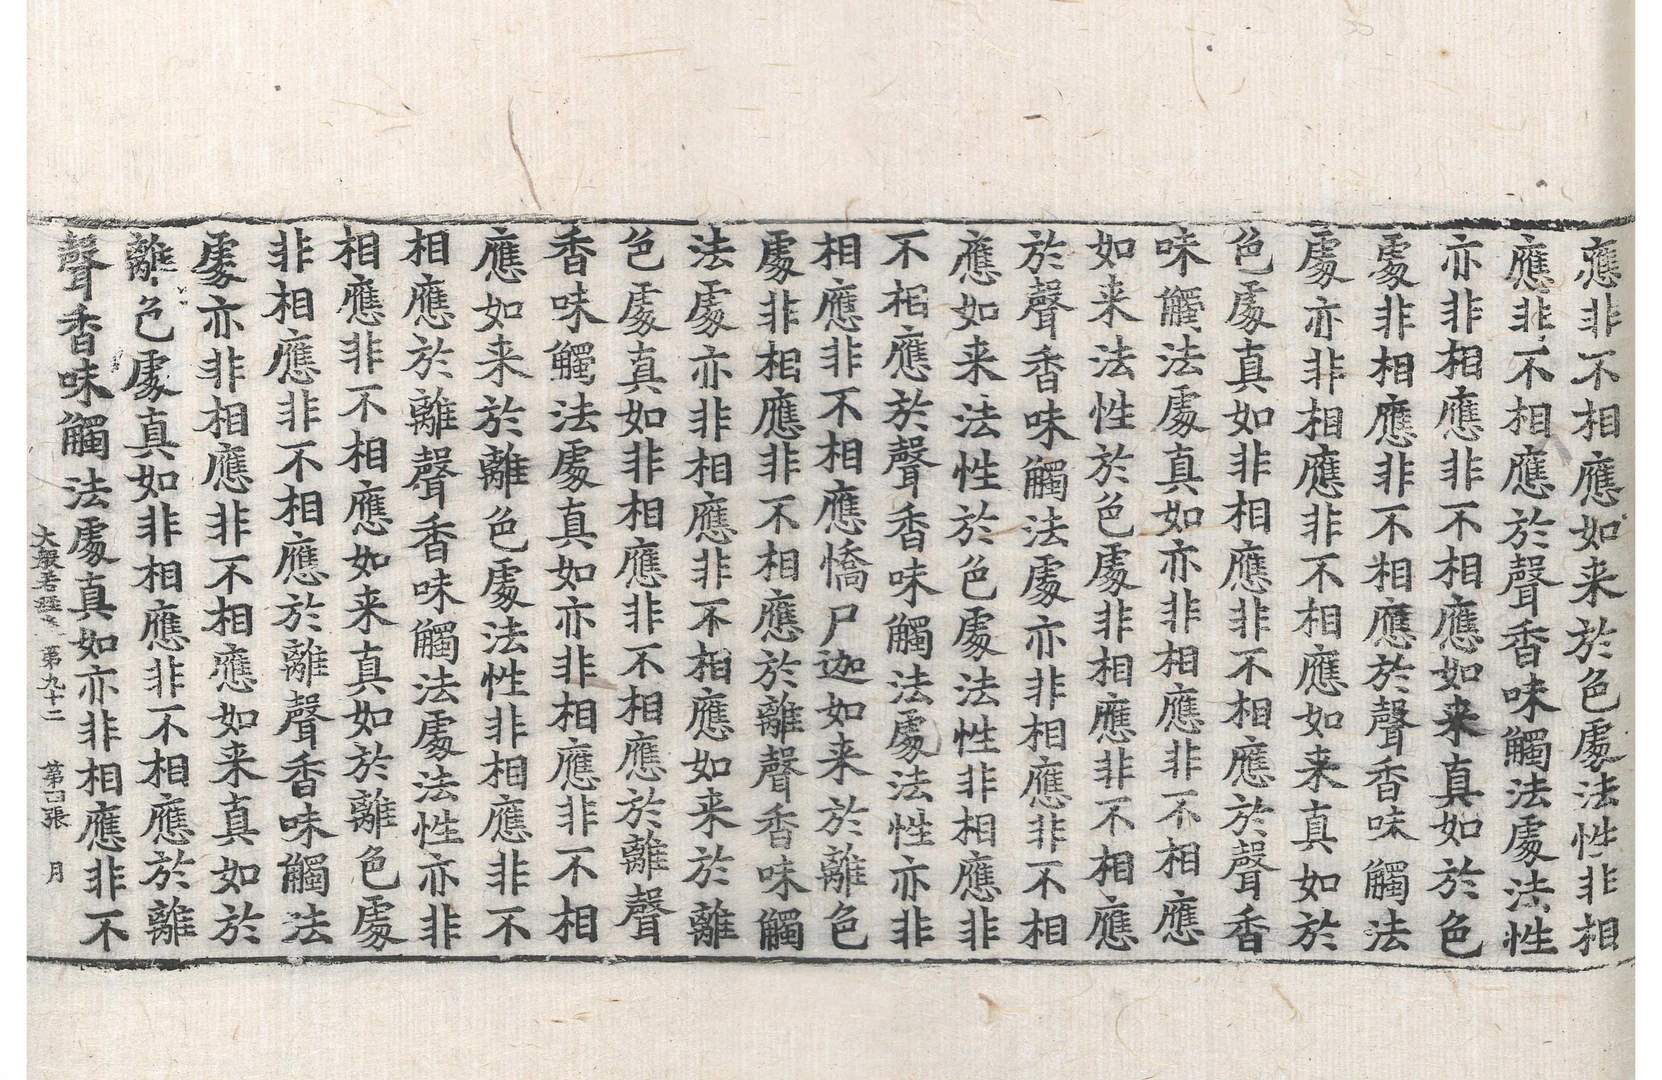 應非不相應如来於色處法性非相
應非不相應於聲香味觸法處法性
亦非相應非不相應如来真如於色
處非相應非不相應於聲香味觸法
處亦非相應非不相應如来真如於
色處真如非相應非不相應於聲香
味觸法處真如亦非相應非不相應
如来法性於色處非相應非不相應
於聲香味觸法處亦非相應非不相
應如来法性於色處法性非相應非
不相應於聲香味觸法處法性亦非
相應非不相應憍尸迦如来於離色
處非相應非不相應於離聲香味觸
法處亦非相應非不相應如来於離
色處真如非相應非不相應於離聲
香味觸法處真如亦非相應非不相
應如来於離色處法性非相應非不
相應於離聲香味觸法處法性亦非
相應非不相應如来真如於離色處
非相應非不相應於離聲香味觸法
處亦非相應非不相應如来真如於
離色處真如非相應非不相應於離
聲香味觸法處真如亦非相應非不
大般若經 第九十二 第四張 月